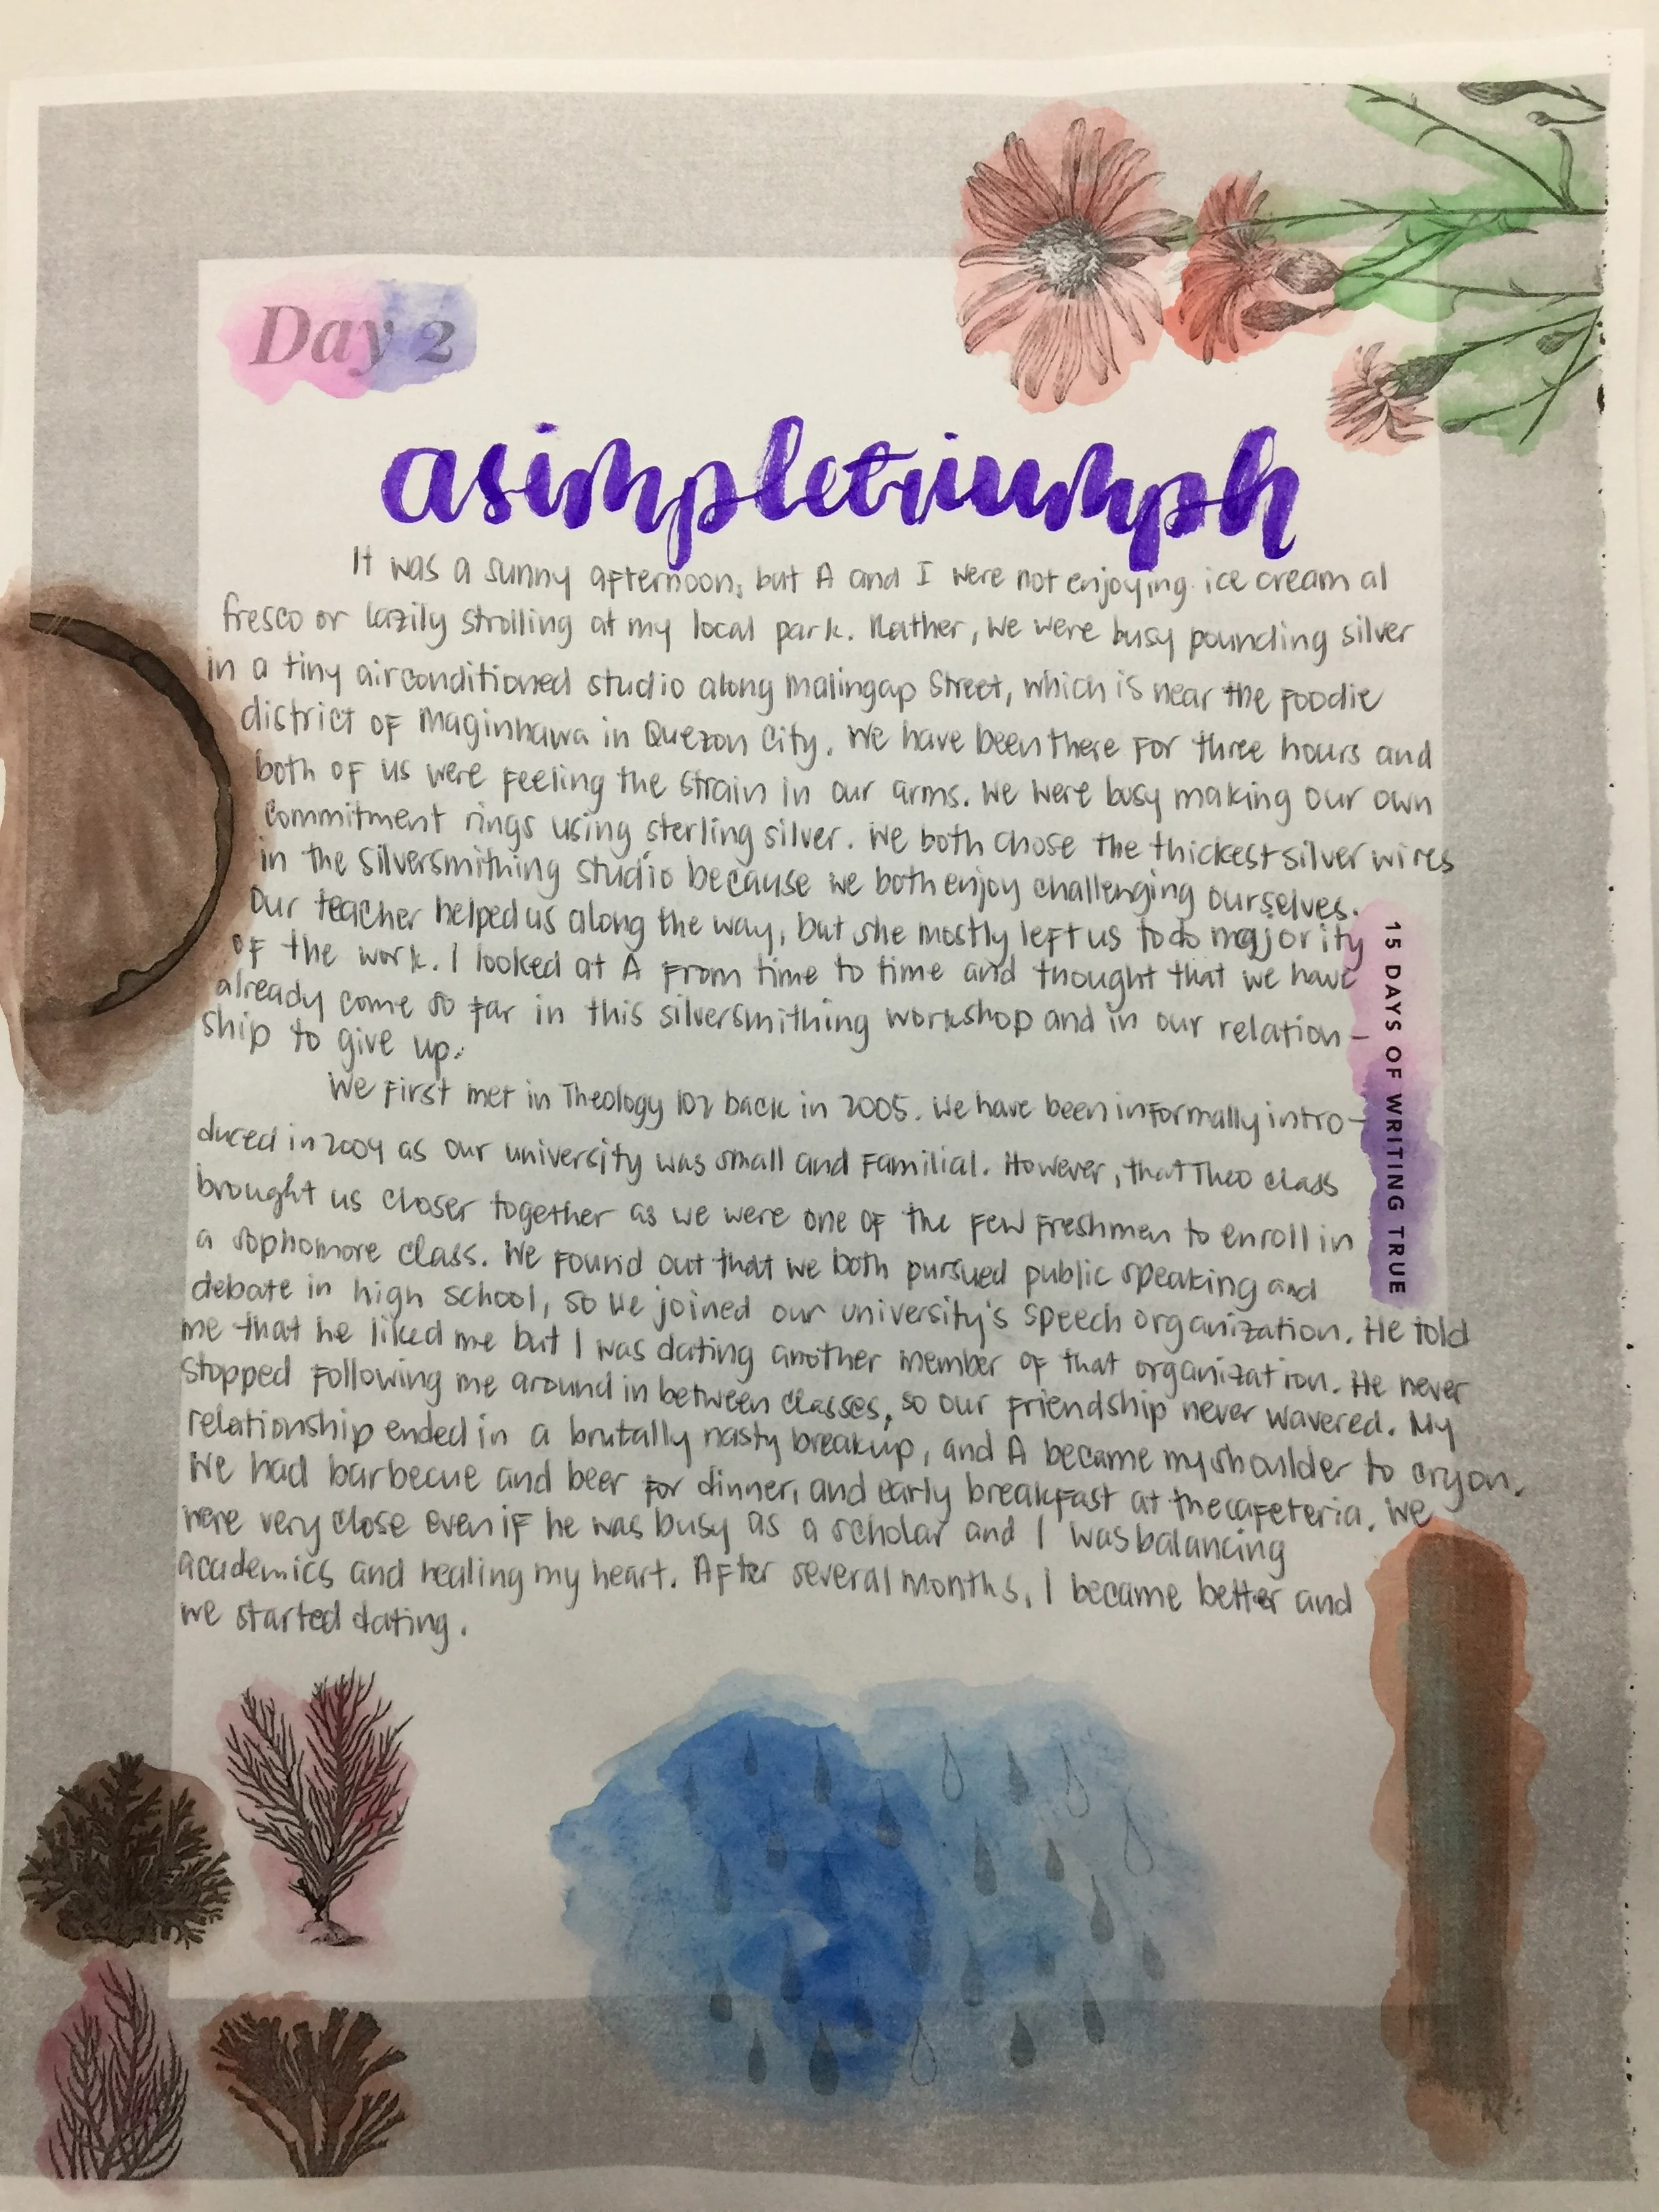 Day 2
asimpletriumph
It was a sunny afternoon, but A and I were not enjoying ice cream al
fresco or lazily strolling at my local park. Rather, we were busy pounding silver
in a tiny airconditioned studio along Malingap Street, which is near the foodie
district of Maginhawa in Quezon City. We have been there for three hours and
both of us were feeling the strain in our arms. We were busy making our own
commitment rings using sterling silver. We both chose the thickest silver wires
in the silversmithing studio because we both enjoy challenging ourselves.
Our teacher helped us along the way, but she mostly left us to do majority
of the work. I looked at A from time to time and thought that we have
already come so far in this silversmithing workshop and in our relation-
ship to give up.
We first met in Theology 102 back in 2005. We have been informally intro-
duced in 2004 as our university was small and familial. However, that Theo class
brought us closer together as we were one of the few freshmen to enroll in
a sophomore class. We found out that we both pursued public speaking and
debate in high school, so we joined our university's speech organization. He told
me that he liked me but I was dating another member of that organization. He never
stopped following me around in between classes, so our friendship never wavered. My
relationship ended in a brutally nasty breakup, and A became my shoulder to cry on.
We had barbecue and beer for dinner, and early breakfast at the cafeteria. We
were very close even if he was busy as a scholar and I was balancing
academics and healing my heart. After several months, I became better and
we started dating.
15 DAYS OF WRITING TRUE